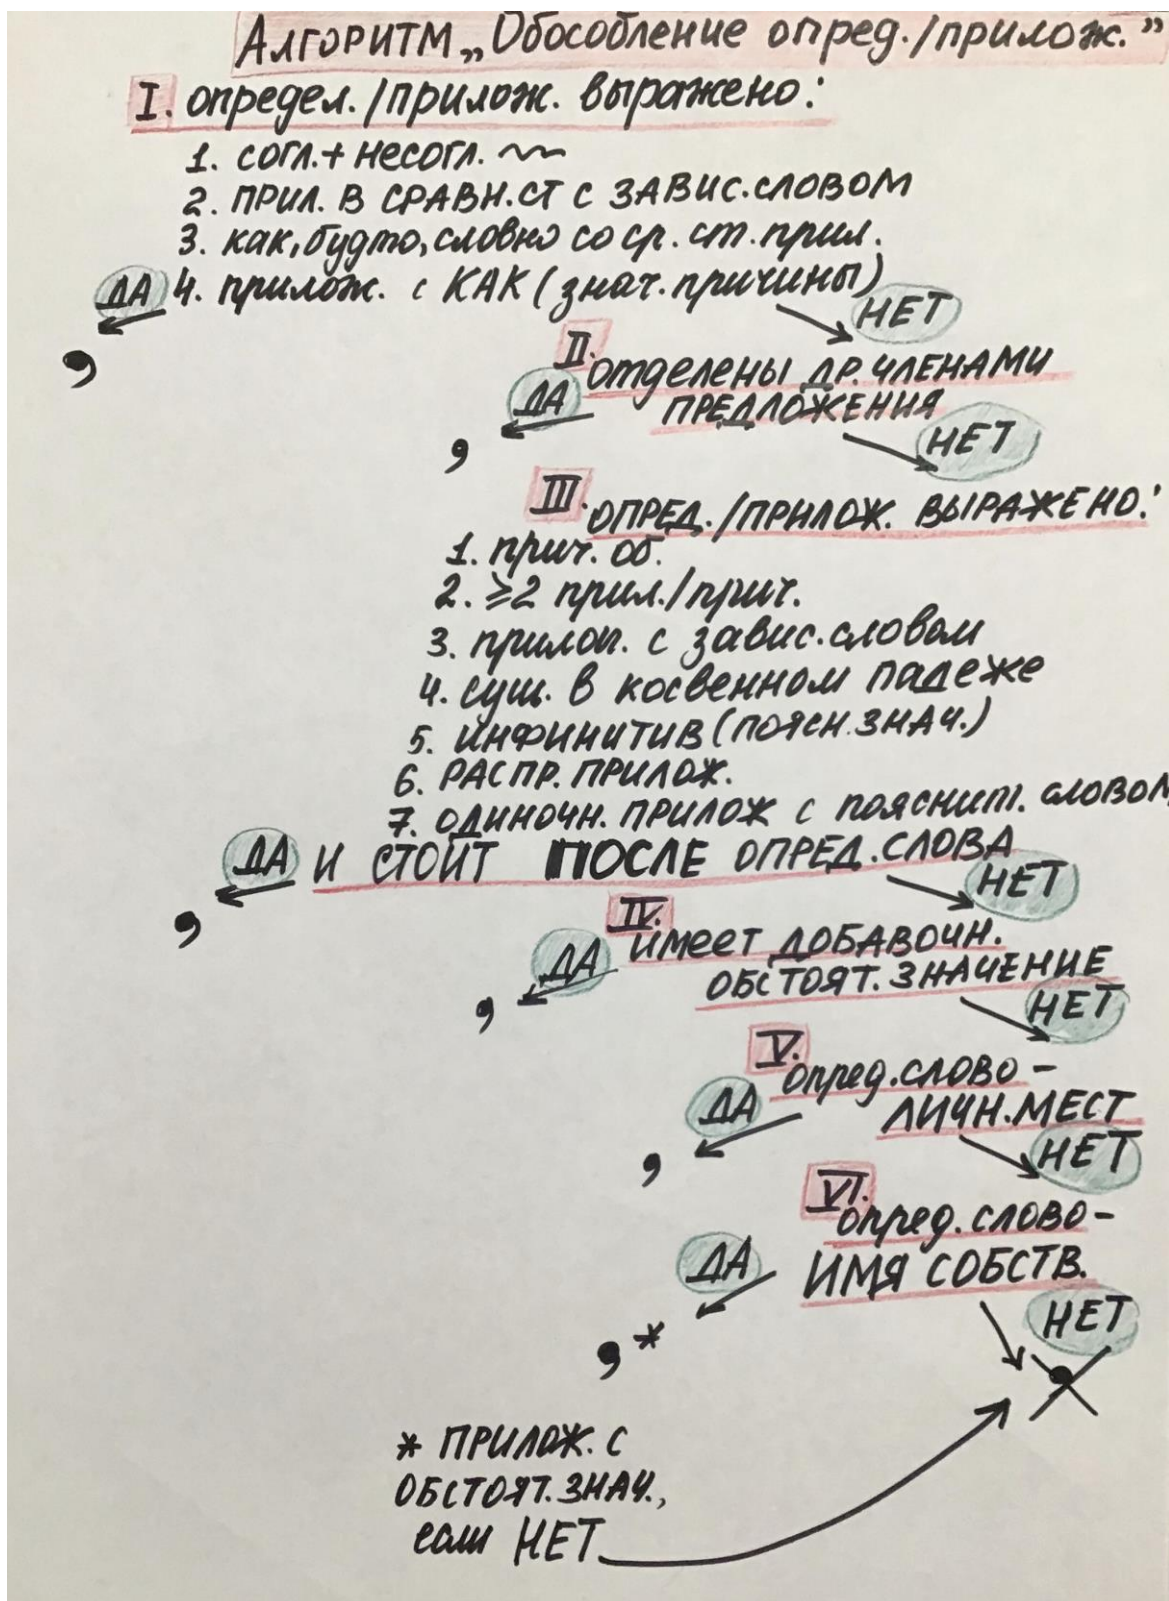 Алгоритм „Обособление опред./прилож.”
I. определ./прилож. выражено:
1. согл.+ несогл.
2. прил. в сравн.ст с завис.словом
3. как, будто, словно со ср. ст. прил.
ДА 4. прилож. с КАК (знач. причины)
НЕТ
,
II. отделены др. членами
ДА предложения
НЕТ
,
III. опред./прилож. выражено:
1. прич. об.
2. ≥2 прил./прич.
3. прилаг. с завис.словом
4. сущ. в косвенном падеже
5. инфинитив (поясн. знач.)
6. распр. прилож.
7. одиночн. прилож с пояснит. словом
ДА и стоит ПОСЛЕ опред.слова
НЕТ
,
IV. имеет добавочн.
ДА обстоят. значение
НЕТ
,
V. опред.слово –
ДА личн.мест
НЕТ
,
VI. опред.слово –
ДА ИМЯ СОБСТВ.
НЕТ
,*
* прилож. с
обстоят. знач.,
если НЕТ